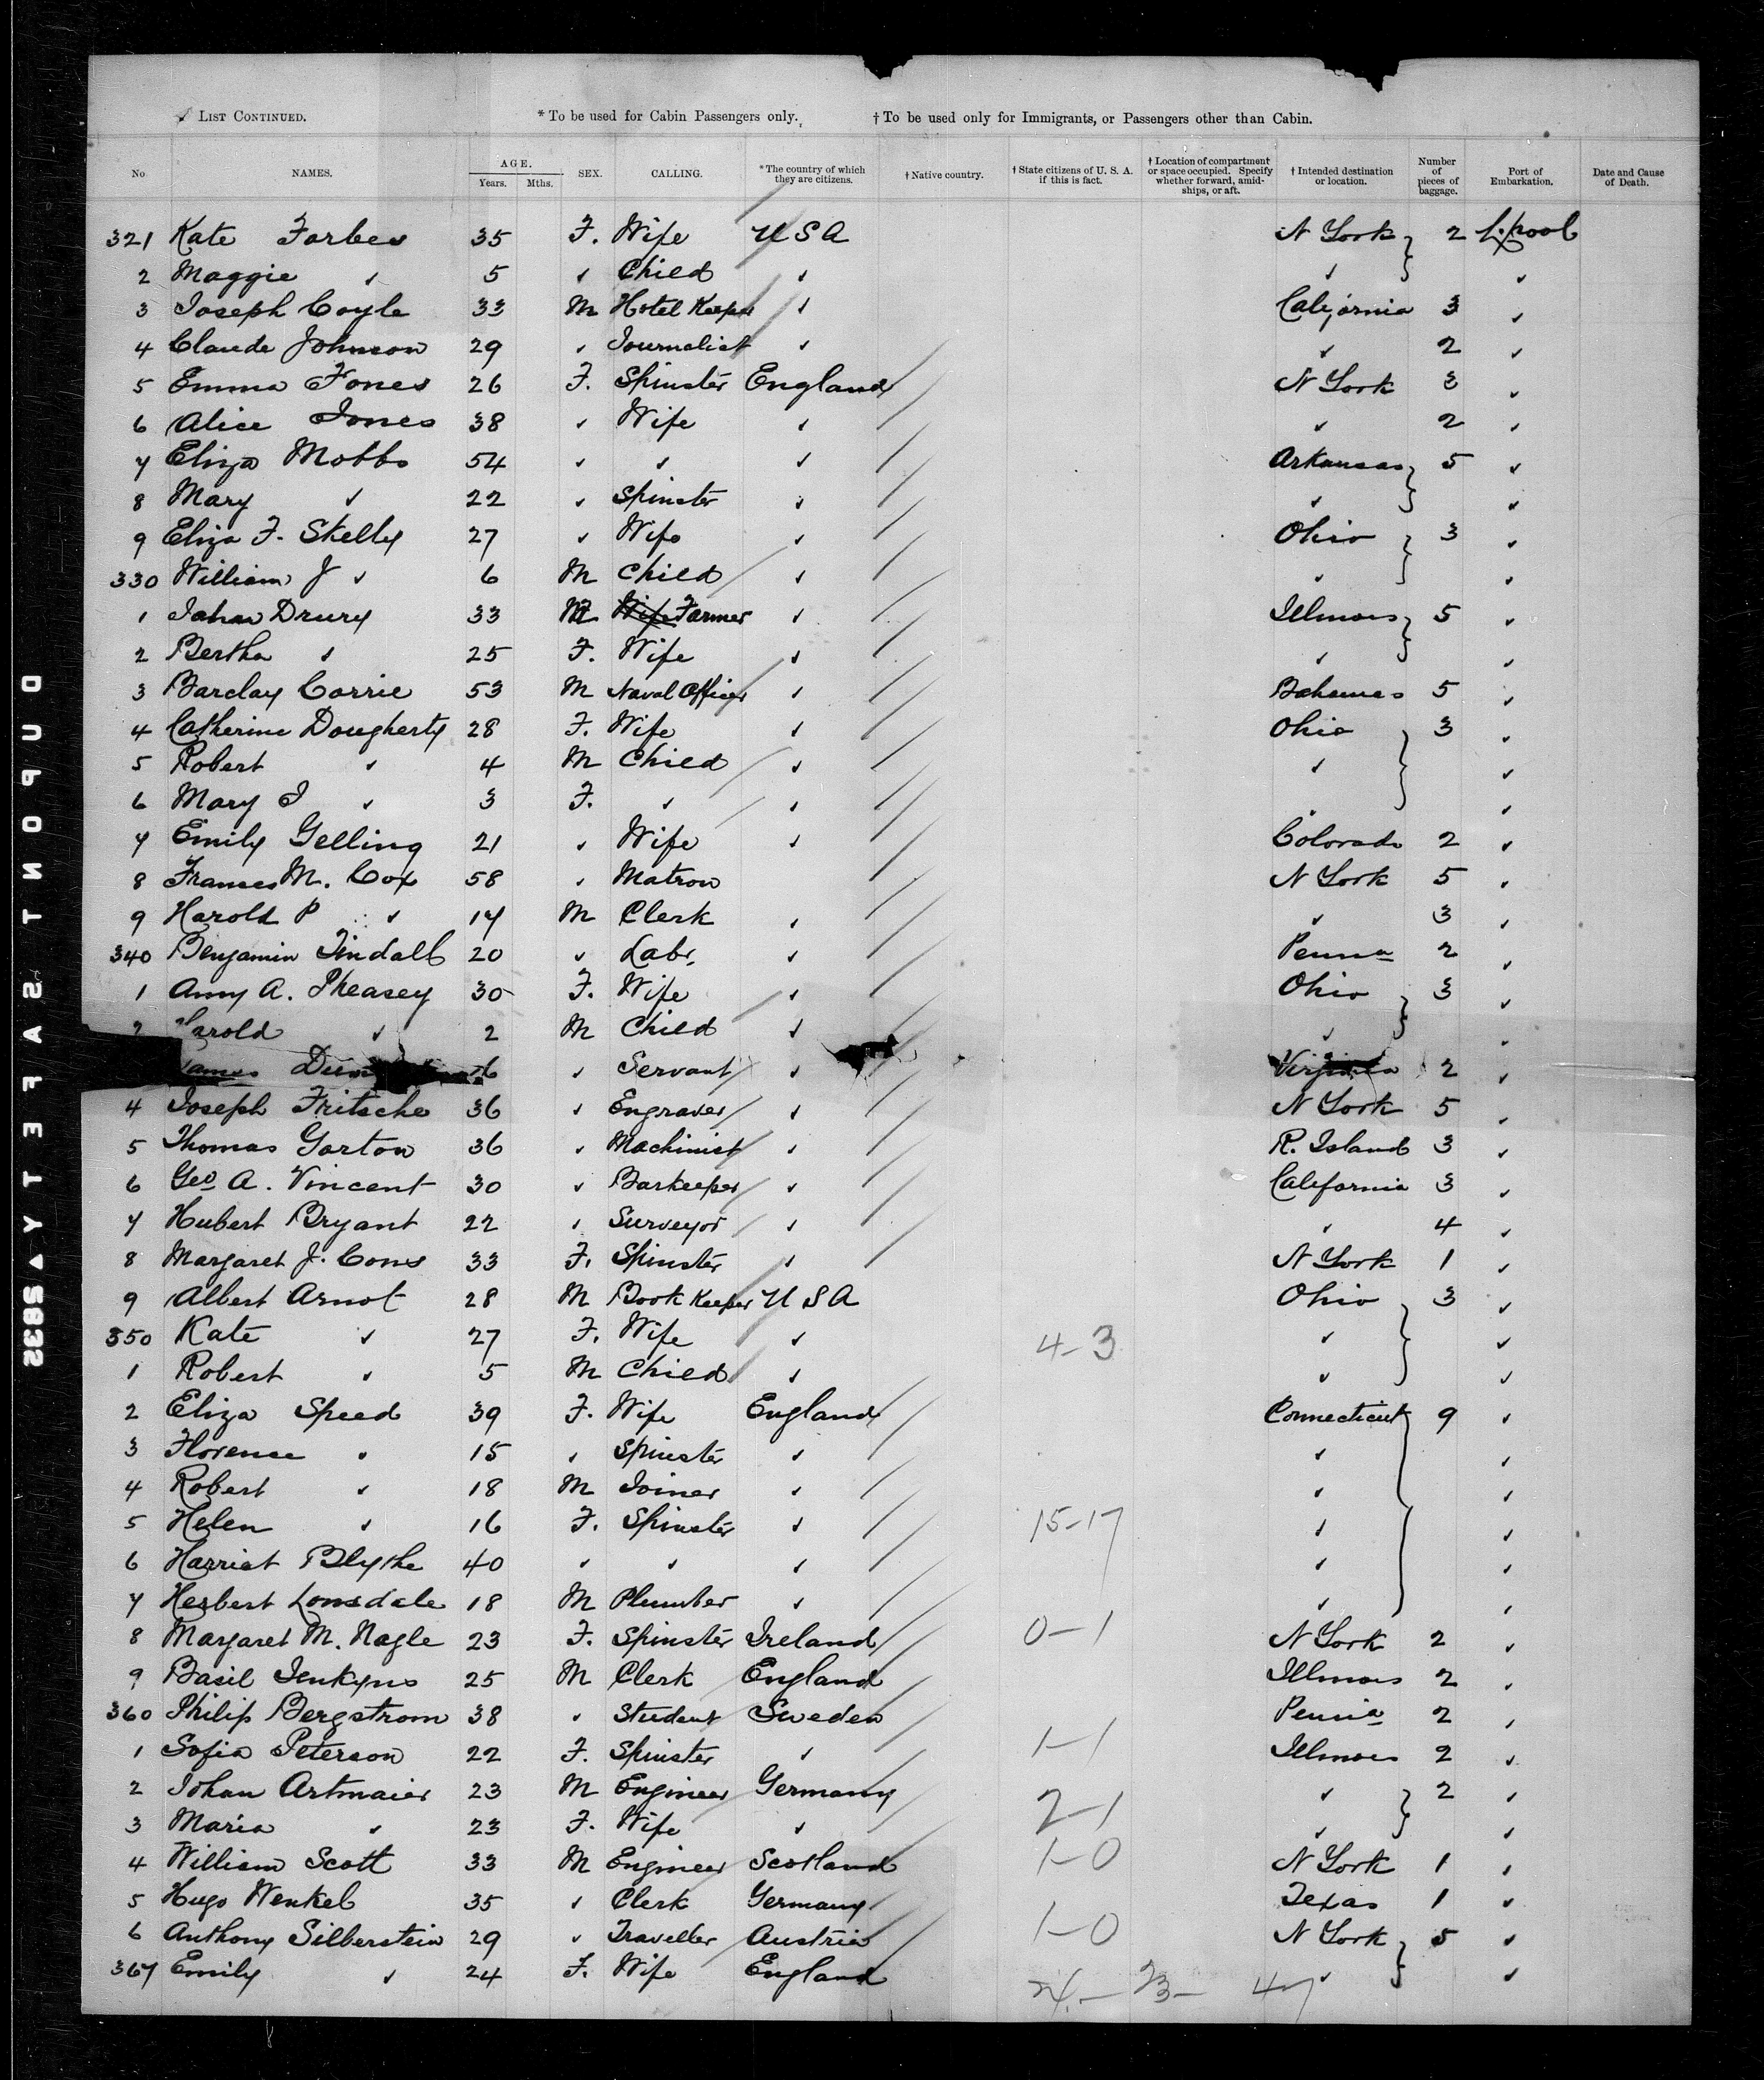 LIST CONTINUED. * To be used for Cabin Passengers only. † To be used only for Immigrants, or Passengers other than Cabin.
No NAMES. AGE. Years. Mths. SEX. CALLING. * The country of which they are citizens. † Native country. † State citizens of U. S. A. if this is fact. † Location of compartment or space occupied. Specify whether forward, amidships, or aft. † Intended destination or location. Number of pieces of baggage. Port of Embarkation. Date and Cause of Death.
321 Kate Forbes 35 F. Wife U S A N York 2 L.pool
2 Maggie " 5 " Child " " "
3 Joseph Coyle 33 M Hotel Keeper " California 3 "
4 Claude Johnson 29 " Journalist " " 2 "
5 Emma Jones 26 F. Spinster England N York 3 "
6 Alice Jones 38 " Wife " " 2 "
7 Eliza Mobbs 54 " " " Arkansas 5 "
8 Mary " 22 " Spinster " " "
9 Eliza F. Skelly 27 " Wife " Ohio 3 "
330 William J " 6 M Child " " "
1 Drury 33 M Wife Farmer " Illinois 5 "
2 Bertha " 25 F. Wife " " "
3 Barclay Corrie 53 M Naval Officer " Bahamas 5 "
4 Catherine Dougherty 28 F. Wife " Ohio 3 "
5 Robert " 4 M Child " " "
6 Mary J " 3 F. " " " "
7 Emily Gelling 21 " Wife " Colorado 2 "
8 Frances M. Cox 58 " Matron N York 5 "
9 Harold P " 17 M Clerk " " 3 "
340 Benjamin Tindall 20 " Labr. " Penna 2 "
1 Amy A. Pheasey 30 F. Wife " Ohio 3 "
2 Harold " 2 M Child " " "
James 6 " Servant " Virginia 2 "
4 Joseph Fritsche 36 " Engraver " N York 5 "
5 Thomas Gorton 36 " Machinist " R. Island 3 "
6 Geo A. Vincent 30 " Barkeeper " California 3 "
7 Hubert Bryant 22 " Surveyor " " 4 "
8 Margaret J. Cons 33 F. Spinster " N York 1 "
9 Albert Arnot 28 M Book Keeper U S A Ohio 3 "
350 Kate " 27 F. Wife " 4-3 " "
1 Robert " 5 M Child " " "
2 Eliza Speed 39 F. Wife England Connecticut 9 "
3 Florence " 15 " Spinster " " "
4 Robert " 18 M Joiner " " "
5 Helen " 16 F. Spinster " 15-17 " "
6 Harriet Blythe 40 " " " " "
7 Herbert Lonsdale 18 M Plumber " " "
8 Margaret M. Nagle 23 F. Spinster Ireland 0-1 N York 2 "
9 Basil Jenkyns 25 M Clerk England Illinois 2 "
360 Philip Bergstrom 38 " Student Sweden Penna 2 "
1 Sofia Peterson 22 F. Spinster " 1-1 Illinois 2 "
2 Johan Artmaier 23 M Engineer Germany " 2 "
3 Maria " 23 F. Wife " 2-1 " "
4 William Scott 33 M Engineer Scotland 1-0 N York 1 "
5 Hugo Wenkel 35 " Clerk Germany Texas 1 "
6 Anthony Silberstein 29 " Traveller Austria 1-0 N York 5 "
367 Emily " 24 F. Wife England "
24- 23- 47
DUPONT SAFETY 5832